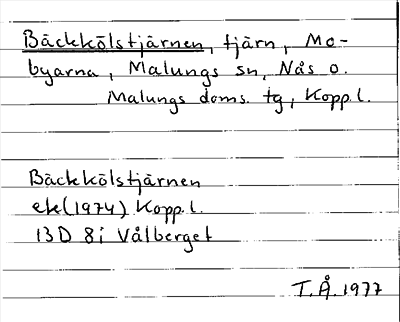 Bäckkölstjärnen, tjärn, Mo-
byarna, Malungs sn, Nås o.
Malungs doms. tg, Kopp.l.
Bäckkölstjärnen
ek(1974) Kopp.l.
13D 8i Vålberget
T.Å.1977